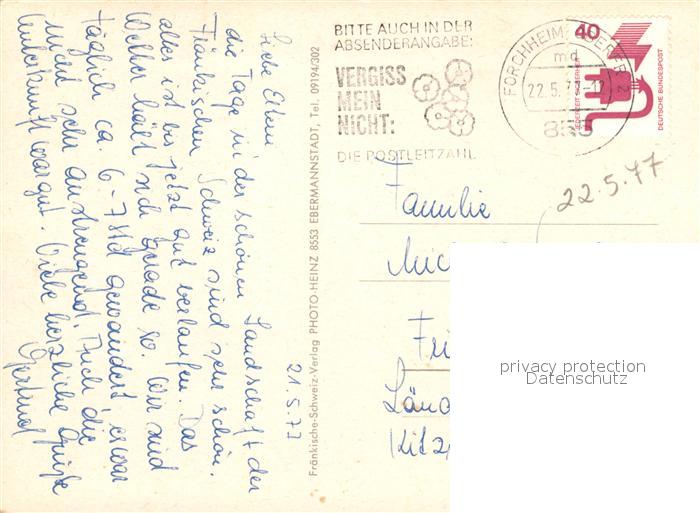 BITTE AUCH IN DER
ABSENDERANGABE:
VERGISS
MEIN
NICHT:
DIE POSTLEITZAHL
FORCHHEIM, OBERFR 2
md
22.5.7 -12
855
40
JEDERZEIT SICHERHEIT
DEUTSCHE BUNDESPOST
22.5.77
21.5.77
Liebe Eltern
die Tage in der schönen Landschaft der
Fränkischen Schweiz sind sehr schön.
alles ist bis jetzt gut verlaufen. Das
Wetter hält sich gerade so. Wir sind
täglich ca. 6-7 Std gewandert es war
nicht sehr anstrengend. Auch die
Unterkunft war gut. Viele herzliche Grüße
Gertrud
Fränkische-Schweiz-Verlag PHOTO-HEINZ 8553 EBERMANNSTADT, Tel. 09194/302
Familie
Mic
Fri
Länd
Kitz
privacy protection
Datenschutz